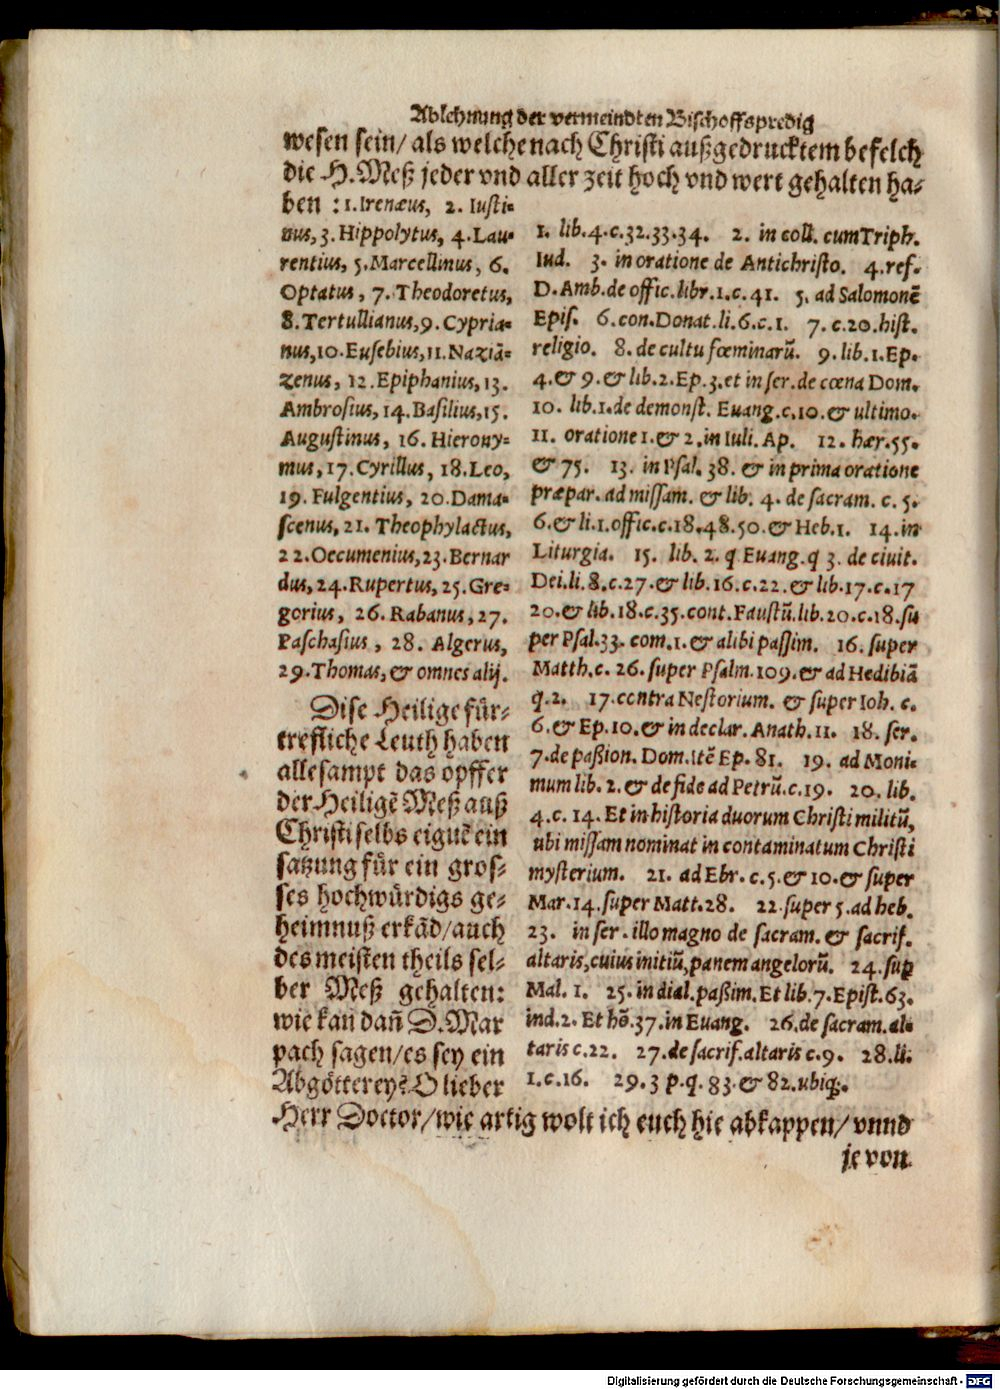 Ablehnung der vermeindten Bischoffspredig
wesen sein/ als welche nach Christi außgedrucktem befelch
die H. Meß jeder vnd aller zeit hoch vnd wert gehalten ha-
ben : 1. Irenæus, 2. Iusti-
nus, 3. Hippolytus, 4. Lau-
rentius, 5. Marcellinus, 6.
Optatus, 7. Theodoretus,
8. Tertullianus, 9. Cypria-
nus, 10. Eusebius, 11. Naziã-
zenus, 12. Epiphanius, 13.
Ambrosius, 14. Basilius, 15.
Augustinus, 16. Hierony-
mus, 17. Cyrillus, 18. Leo,
19. Fulgentius, 20. Dama-
scenus, 21. Theophylactus,
22. Oecumenius, 23. Bernar
dus, 24. Rupertus, 25. Gre-
gorius, 26. Rabanus, 27.
Paschasius, 28. Algerus,
29. Thomas, & omnes alij.
Dise Heilige für-
trefliche Leuth haben
allesampt das opffer
der Heiligẽ Meß auß
Christi selbs eignẽ ein
satzung für ein gros-
ses hochwürdigs ge-
heimnuß erkãd/ auch
des meisten theils sel-
ber Meß gehalten:
wie kan dañ D. Mar
pach sagen/ es sey ein
Abgötterey? O lieber
1. lib. 4. c. 32. 33. 34. 2. in coll. cum Triph.
Iud. 3. in oratione de Antichristo. 4. ref.
D. Amb. de offic. libr. 1. c. 41. 5. ad Salomonẽ
Epis. 6. con. Donat. li. 6. c. 1. 7. c. 20. hist.
religio. 8. de cultu fœminarũ. 9. lib. 1. Ep.
4. & 9. & lib. 2. Ep. 3. et in ser. de cœna Dom.
10. lib. 1. de demonst. Euang. c. 10. & ultimo.
11. oratione 1. & 2. in Iuli. Ap. 12. hær. 55.
& 75. 13. in Psal. 38. & in prima oratione
præpar. ad missam. & lib. 4. de sacram. c. 5.
6. & li. 1. offic. c. 18. 48. 50. & Heb. 1. 14. in
Liturgia. 15. lib. 2. q Euang. q 3. de ciuit.
Dei. li. 8. c. 27. & lib. 16. c. 22. & lib. 17. c. 17
20. & lib. 18. c. 35. cont. Faustũ. lib. 20. c. 18. su
per Psal. 33. com. 1. & alibi passim. 16. super
Matth. c. 26. super Psalm. 109. & ad Hedibiã
q. 2. 17. contra Nestorium. & super Ioh. c.
6. & Ep. 10. & in declar. Anath. 11. 18. ser.
7. de paßion. Dom. Itẽ Ep. 81. 19. ad Moni-
mum lib. 2. & de fide ad Petrũ. c. 19. 20. lib.
4. c. 14. Et in historia duorum Christi militũ,
ubi missam nominat in contaminatum Christi
mysterium. 21. ad Ebr. c. 5. & 10. & super
Mar. 14. super Matt. 28. 22. super 5. ad heb.
23. in ser. illo magno de sacram. & sacrif.
altaris, cuius initiũ, panem angelorũ. 24. sup
Mal. 1. 25. in dial. paßim. Et lib. 7. Epist. 63.
ind. 2. Et hõ. 37. in Euang. 26. de sacram. al-
taris c. 22. 27. de sacrif. altaris c. 9. 28. li.
1. c. 16. 29. 3 p. q. 83. & 82. ubiq;.
Herr Doctor/ wie artig wolt ich euch hie abkappen/ vnnd
je von
Digitalisierung gefördert durch die Deutsche Forschungsgemeinschaft - DFG